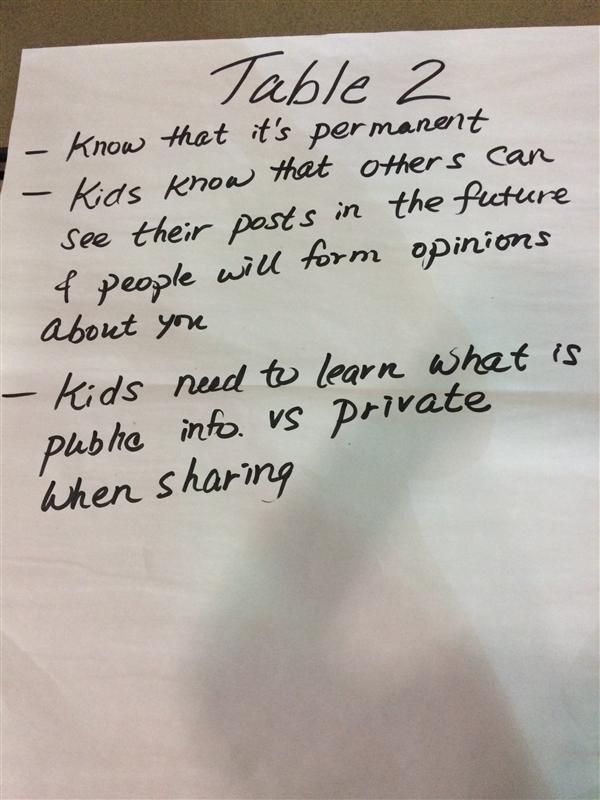 Table 2
- Know that it's permanent
- Kids know that others can
see their posts in the future
& people will form opinions
about you
- Kids need to learn what is
public info. vs private
when sharing